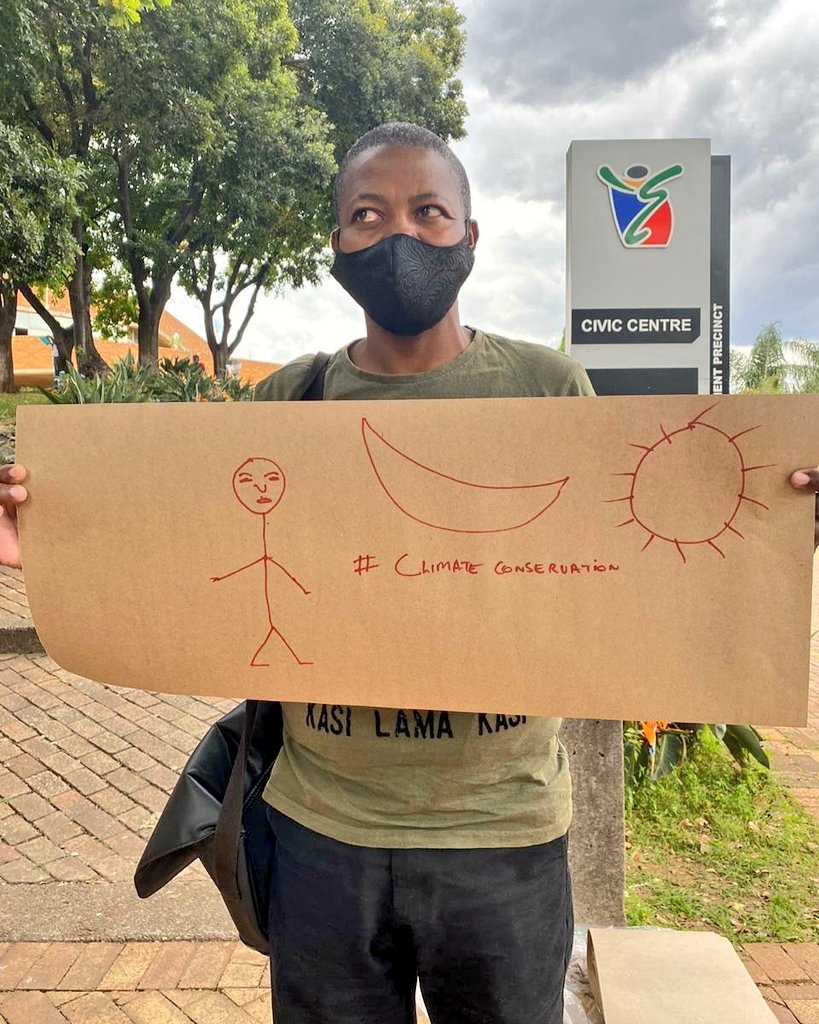 CIVIC CENTRE
PRECINCT
# CLIMATE CONSERVATION
KASI LAMA KASI